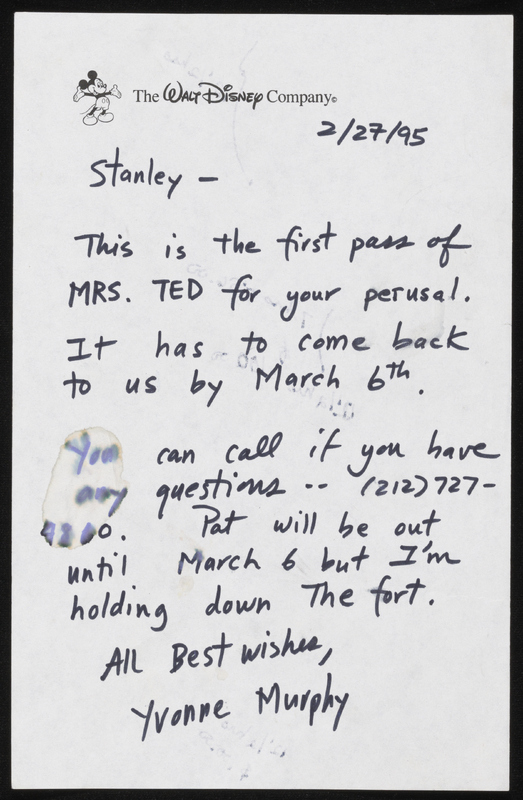 The Walt Disney Company©
2/27/95
Stanley –
This is the first pass of
MRS. TED for your perusal.
It has to come back
to us by March 6th.
You can call if you have
any questions -- (212) 727-
0. Pat will be out
until March 6 but I'm
holding down The fort.
All Best wishes,
Yvonne Murphy